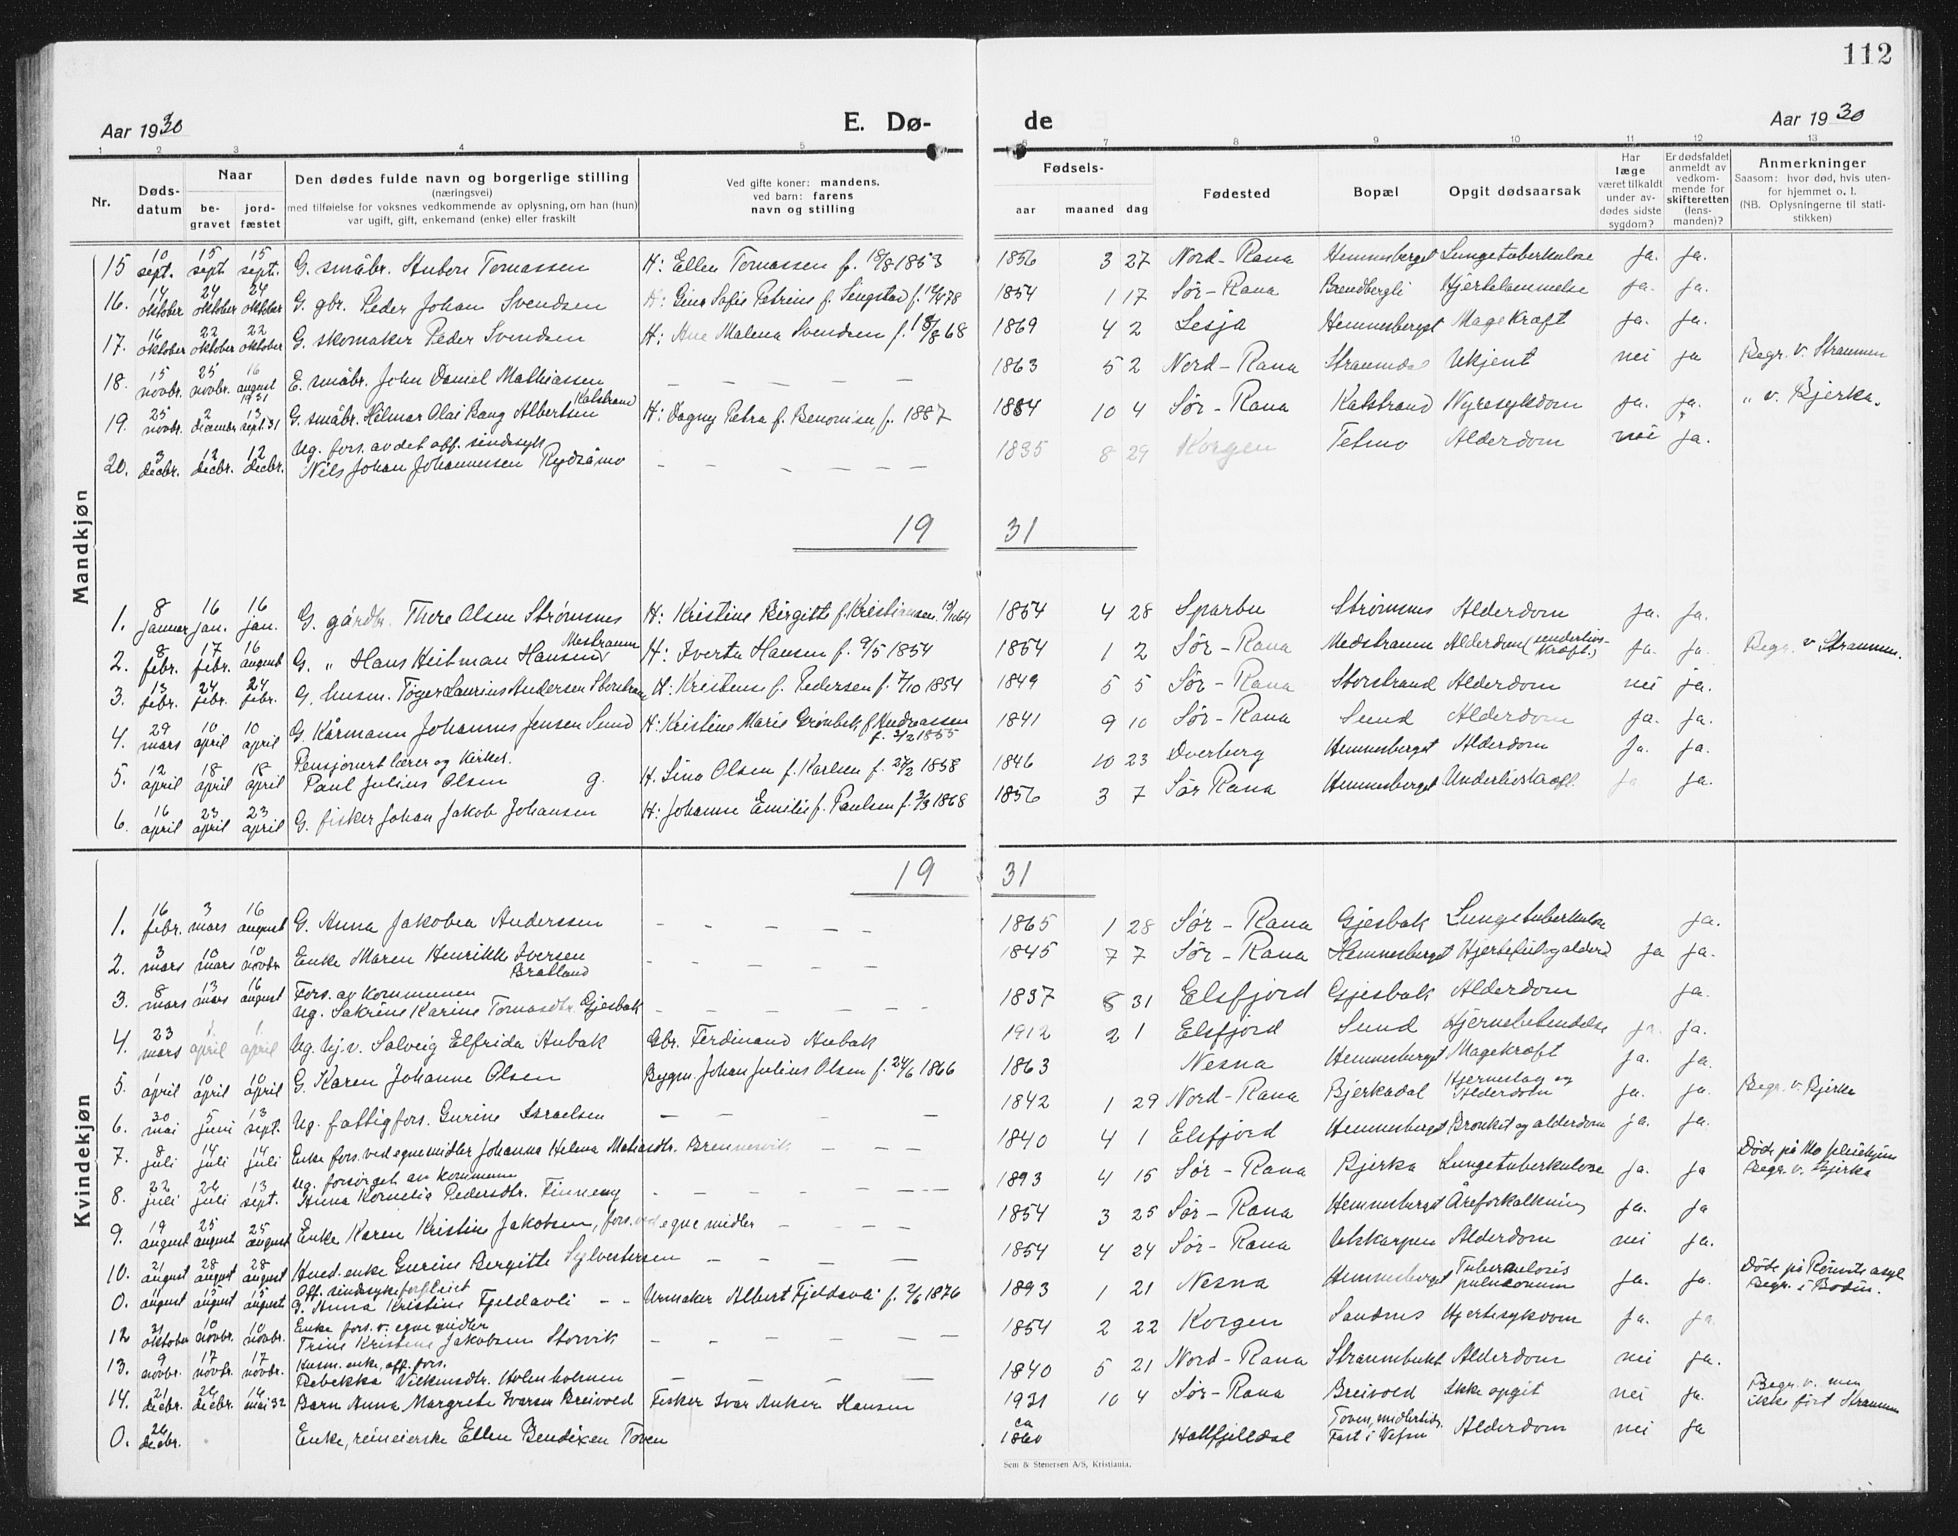 112
Aar 1930
E. Dø-
de
Aar 1930
1 2 3 4 5 6 7 8 9 10 11 12 13
Nr.
Døds-
datum
Naar
be-
gravet
jord-
fæstet
Den dødes fulde navn og borgerlige stilling
(næringsvei)
med tilføielse for voksnes vedkommende av oplysning, om han (hun)
var ugift, gift, enkemand (enke) eller fraskilt
Ved gifte koner: mandens.
ved barn: farens
navn og stilling
Fødsels-
aar maaned dag
Fødested
Bopæl
Opgit dødsaarsak
Har
læge
været tilkaldt
under av-
dødes sidste
sygdom?
Er dødsfaldet
anmeldt av
vedkom-
mende for
skifteretten
(lens-
manden)?
Anmerkninger
Saasom: hvor død, hvis uten-
for hjemmet o. l.
(NB. Oplysningerne til stati-
stikken)
Mandkjøn
15 10 sept. 15 sept. 15 sept. G. småbr. Anton Tomassen H: Ellen Tomassen f. 18/8 1853 1856 3 27 Nord-Rana Hemnesberget Lungetuberkulose ja. ja.
16. 14 oktober 24 oktober 24 oktober G. gbr. Peder Johan Svendsen H: Gina Sofie Petrine f. 1854 1 17 Sør-Rana Brendbergli Hjertelammelse ja. ja.
17. 16 oktober 22 oktober 22 oktober G. skomaker Peder Svendsen H: Ane Malena Svendsen 1869 4 2 Lesja Hemnesberget Magekræft ja. ja.
18. 15 novbr. 25 novbr. 16 august 1931 E. småbr. John Daniel Mathiassen — — — — — 1863 5 2 Nord-Rana Straumdal Ukjent nei ja Begr. v. Straumen
19. 25 novbr. 2 december 13 sept. 31 G. småbr. Hilmar Olai Bang Albertsen Kalstrand H: Dagny Petra f. Benonisen, f. 1887 1884 10 4 Sør-Rana Kalstrand Nyresykdom ja. ja. " v. Bjerka.
Ug. fors. av det off. sindssyk
20. 3 decbr. 12 decbr. 12 decbr. Nils Johan Johannessen Rydsåmo — — — — — 1835 8 29 Korgen Tetmo Alderdom nei ja.
19 31
1. 8 januar 16 jan. 16 jan. G. gårdbr. Thore Olsen Strømsnes H: Kristine Birgitte f. Kristiansen 1854 4 28 Sparbu Strømsnes Alderdom ja. ja.
2. 8 febr. 17 febr. 16 august G. " Hans Heitman Hansen Mestraumen H: Iverta Hansen f. 9/5 1854 1854 1 2 Sør-Rana Medstraumen Alderdom (underlivskræft) ja. ja. Begr. v. Straumen.
3. 13 febr. 24 febr. 24 febr. G. husm. Tøger Laurius Andersen Storstrand H: Kristense f. Pedersen f. 7/10 1854 1849 5 5 Sør-Rana Storstrand Alderdom nei ja.
4. 29 mars 10 april 10 april G. Kårmann Johannes Jensen Sund H: Kristine Marie Grønbek f. Andreassen f. 3/2 1855 1841 9 10 Sør-Rana Sund Alderdom ja. ja.
Pensjonert lærer og kirkes.
5. 12 april 18 april 18 april Paul Julius Olsen g. H. Lina Olsen f. Karlsen f. 27/2 1858 1846 10 23 Dverberg Hemnesberget Alderdom ja. ja.
6. 16 april 23 april 23 april G. fisker Johan Jakob Johansen H: Johanne Emilie f. Paulsen f. 3/3 1868 1856 3 7 Sør Rana Hemnesberget Underlivskræft. ja ja.
Kvindekjøn
19 31
1. 16 febr. 3 mars 16 august G. Anna Jakobea Anderssen - - - - - 1865 1 28 Sør-Rana Gjesbak Lungetuberkulose ja.
2. 3 mars 10 mars 10 novbr. Enke Maren Henrikke Iversen Bratland - - - - - 1845 7 7 Sør-Rana Hemnesberget Hjertefeil og alderd. ja ja.
Fors. av kommunen
3. 8 mars 13 mars 16 august Ug. Sakrine Karine Tomasdtr. Gjesbak - - - - - 1837 8 31 Elsfjord Gjesbak Alderdom ja.
4. 23 mars 1. april 1. april Ug. hj.v. Solveig Elfrida Aubak Gbr. Ferdinand Aubak 1912 2 1 Elsfjord Sund Hjernebetendelse ja. ja.
5. 1 april 10 april 10 april G. Karen Johanne Olsen Bygm. Johan Julius Olsen f. 24/6 1866 1863 Nesna Hemnesberget Magekræft ja. ja.
6. 30 mai 5 juni 13 sept. Ug. fattigfors. Gurine Israelsen — - - - — 1842 1 29 Nord-Rana Bjerkadal Hjerneslag og Alderdom ja. ja. Begr. v. Bjerka
7. 8 juli 14 juli 14 juli Enke fors. ved egne midler Johanna Helena Matiasdtr. Brennesvik — - - 1840 4 1 Elsfjord Hemnesberget Bronkit og alderdom ja. ja.
Ug. forsørget av kommunen
8. 22 juli 26 juli 13 sept. Anna Kornelia Pedersdtr. Finneng - - - - - 1893 4 15 Sør-Rana Bjerka Lungetuberkulose ja. ja Døde på Mo pleiehjem Begr. v. Bjerka
9. 19 august 25 august 25 august Enke Karen Kristine Jakobsen, fors. ved egne midler - - - 1854 3 25 Sør-Rana Hemnesberget Åreforkalkning ja. ja
10. 21 august 28 august 28 august Hend. enke Gurine Bergitte Sylvestersen — — — — 1854 4 24 Sør-Rana Alderdom nei ja.
Off. sindssykeforpleiet
0. 11 august 15 august 15 august G. Anna Kristine Fjeldavli - - Urmaker Albert Fjeldavli f. 1876 1893 1 21 Nesna Hemnesberget Tuberculosis pulmonum ja. ja. Døde på Rønvik asyl Begr. i Bodin.
Enke fors. v. egne midler
12 31 oktober 10 novbr. 10 novbr. Trine Kristine Jakobsen Storvik - - - - - 1854 2 22 Korgen Sandnes Hjertesykdom ja. ja.
Husm. enke, off. fors.
13. 9 novbr. 17 novbr. 17 novbr. Rebekka Vilkensdtr. Holmholmen — — — — — 1840 5 21 Nord-Rana Straumbukt Alderdom nei ja.
14. 21 decbr. 26 decbr. 16 mai 32 Barn Anna Margrete Ivarsen Breivold Fisker Ivar Anker Hansen 1931 10 4 Sør-Rana Breivold Ikke opgit nei ja. Begr. v. men ikke ført Straumen
0. 26 decbr. Enke, reineierske Ellen Bendixen Toven ca 1860 Hattfjelldal Toven, midlertid. Fast i Vefsn Alderdom nei ja
Sem & Stenersen A/S, Kristiania.